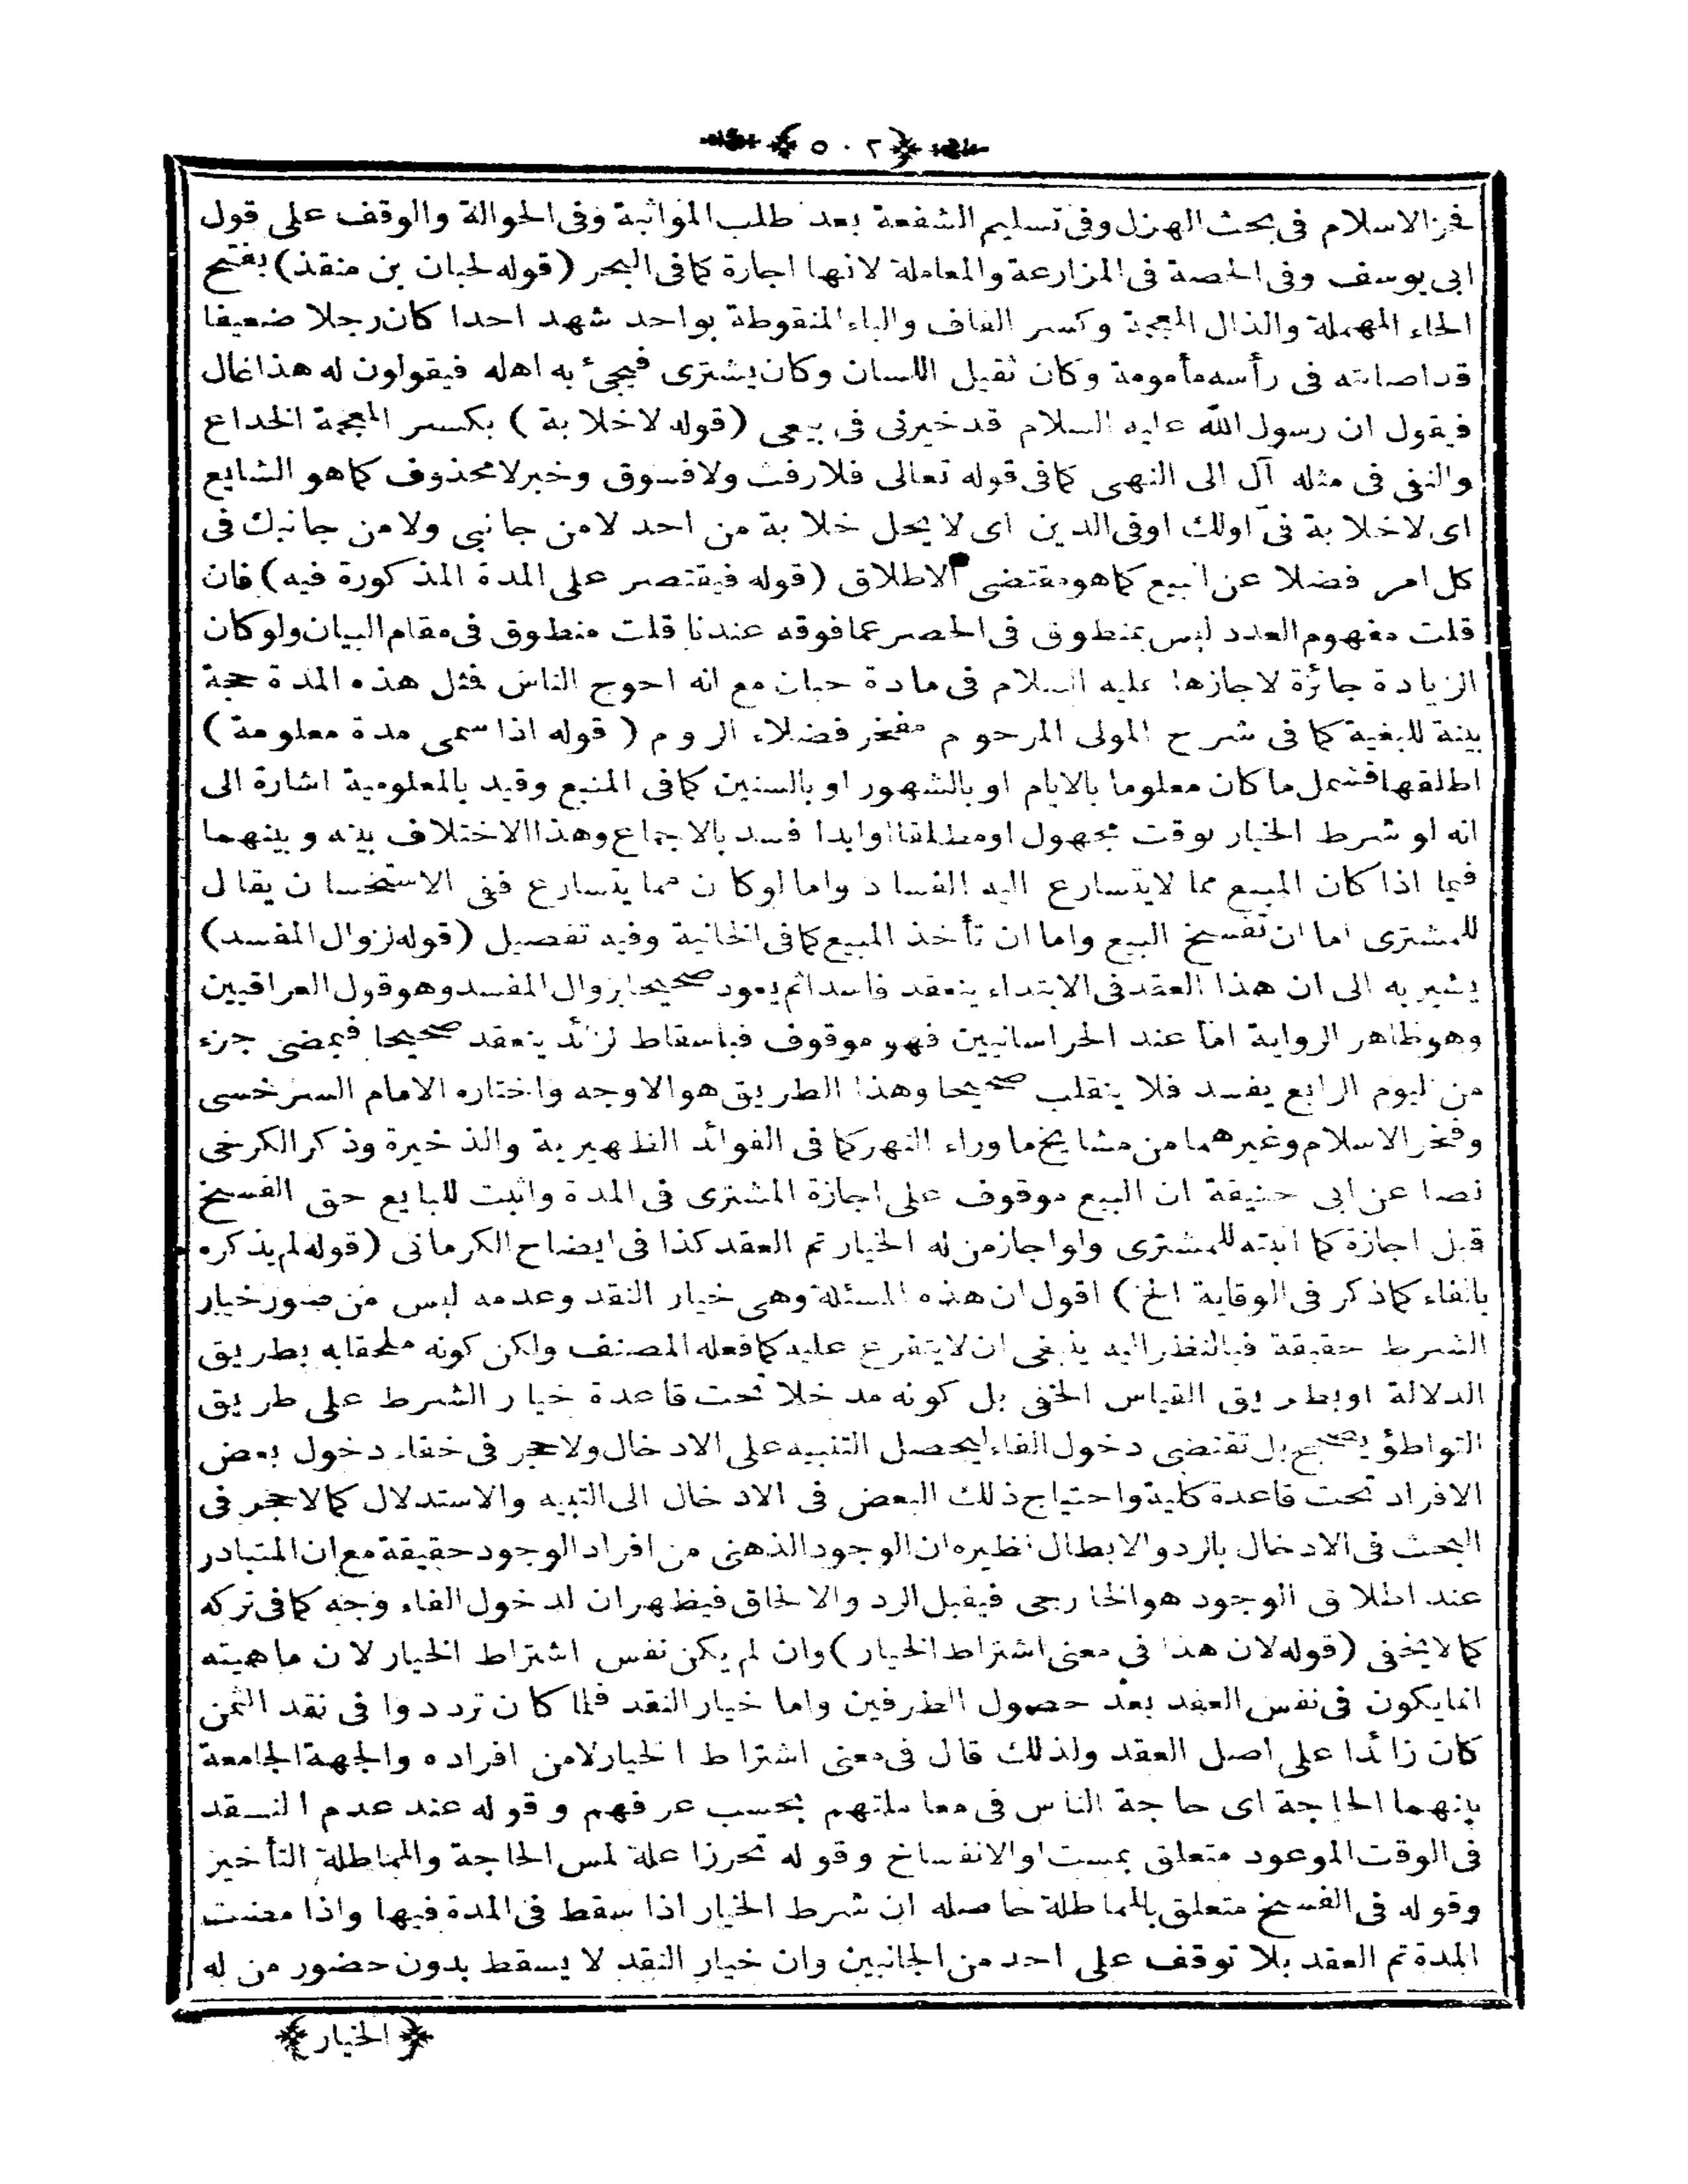 ٥٠٢
فخر الاسلام فى بحث الهزل وفى تسليم الشفعة بعد طلب المواثبة وفى الحوالة والوقف على قول
ابى يوسف وفى الحصة فى المزارعة والمعاملة لانها اجارة كما فى البحر (قوله لحبان بن منقذ) بفتح
الحاء المهملة والذال المعجمة وكسر القاف والباء المنقوطة بواحد شهد احدا كان رجلا ضعيفا
قد اصابته فى رأسه مأمومة وكان ثقيل اللسان وكان يشترى فيجئ به اهله فيقولون له هذا غال
فيقول ان رسول الله عليه السلام قد خيرنى فى بيعى (قوله لاخلابة) بكسر المعجمة الخداع
والنفى فى مثله آل الى النهى كما فى قوله تعالى فلا رفث ولا فسوق وخبر لا محذوف كما هو الشايع
اى لاخلابة فى اولك اوفى الدين اى لا يحل خلابة من احد لا من جانبى ولا من جانبك فى
كل امر فضلا عن البيع كما هو مقتضى الاطلاق (قوله فيقتصر على المدة المذكورة فيه) فان
قلت مفهوم العدد ليس بمنطوق فى الحصر عما فوقه عندنا قلت منطوق فى مقام البيان ولو كان
الزيادة جائزة لاجازها عليه السلام فى مادة حبان مع انه احوج الناس فمثل هذه المدة حجة
بينة للبغية كما فى شرح المولى المرحوم مفخر فضلاء الروم (قوله اذا سمى مدة معلومة)
اطلقها فشمل ما كان معلوما بالايام او بالشهور او بالسنين كما فى المنبع وقيد بالمعلومية اشارة الى
انه لو شرط الخيار بوقت مجهول او مطلقا او ابدا فسد بالاجماع وهذا الاختلاف بينه وبينهما
فيما اذا كان المبيع مما لا يتسارع اليه الفساد واما لو كان مما يتسارع ففى الاستحسان يقال
للمشترى اما ان تفسخ البيع واما ان تأخذ المبيع كما فى الخانية وفيه تفصيل (قوله لزوال المفسد)
يشير به الى ان هذا العقد فى الابتداء ينعقد فاسدا ثم يعود صحيحا بزوال المفسد وهو قول العراقيين
وهو ظاهر الرواية اما عند الخراسانيين فهو موقوف فباسقاط الزائد ينعقد صحيحا فبمضى جزء
من اليوم الرابع يفسد فلا ينقلب صحيحا وهذا الطريق هو الاوجه واختاره الامام السرخسى
وفخر الاسلام وغيرهما من مشايخ ما وراء النهر كما فى الفوائد الظهيرية والذخيرة وذكر الكرخى
نصا عن ابى حنيفة ان البيع موقوف على اجازة المشترى فى المدة واثبت للبايع حق الفسخ
قبل اجازة كما اثبته للمشترى ولو اجاز من له الخيار تم العقد كذا فى ايضاح الكرمانى (قوله لم يذكره
بالفاء كما ذكر فى الوقاية الخ) اقول ان هذه المسئلة وهى خيار النقد وعدمه ليس من صور خيار
الشرط حقيقة فبالنظر اليه ينبغى ان لا يتفرع عليه كما فعله المصنف ولكن كونه ملحقا به بطريق
الدلالة او بطريق القياس الخفى بل كونه مدخلا تحت قاعدة خيار الشرط على طريق
التواطؤ يصحح بل تقتضى دخول الفاء ليحصل التنبيه على الادخال ولا حجر فى خفاء دخول بعض
الافراد تحت قاعدة كلية واحتياج ذلك البعض فى الادخال الى التنبيه والاستدلال كما لا حجر فى
البحث فى الادخال بالرد والابطال نظيره ان الوجود الذهنى من افراد الوجود حقيقة مع ان المتبادر
عند اطلاق الوجود هو الخارجى فيقبل الرد والالحاق فيظهر ان لدخول الفاء وجه كما فى تركه
كما لا يخفى (قوله لان هذا فى معنى اشتراط الخيار) وان لم يكن نفس اشتراط الخيار لان ماهيته
انما يكون فى نفس العقد بعد حصول الطرفين واما خيار النقد فلما كان ترددوا فى نقد الثمن
كان زائدا على اصل العقد ولذلك قال فى معنى اشتراط الخيار لا من افراده والجهة الجامعة
بينهما الحاجة اى حاجة الناس فى معاملتهم بحسب عرفهم وقوله عند عدم النقد
فى الوقت الموعود متعلق بمست او الانفساخ وقوله تحرزا علة لمس الحاجة والمماطلة التأخير
وقوله فى الفسخ متعلق بالمماطلة حاصله ان شرط الخيار اذا سقط فى المدة فيها واذا مضت
المدة تم العقد بلا توقف على احد من الجانبين وان خيار النقد لا يسقط بدون حضور من له
الخيار